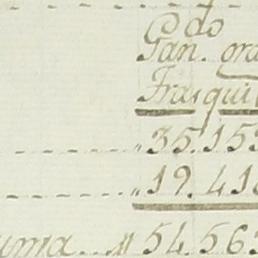 do
Gan. ora
Frasqui
35.153
19.410
uma 54.563